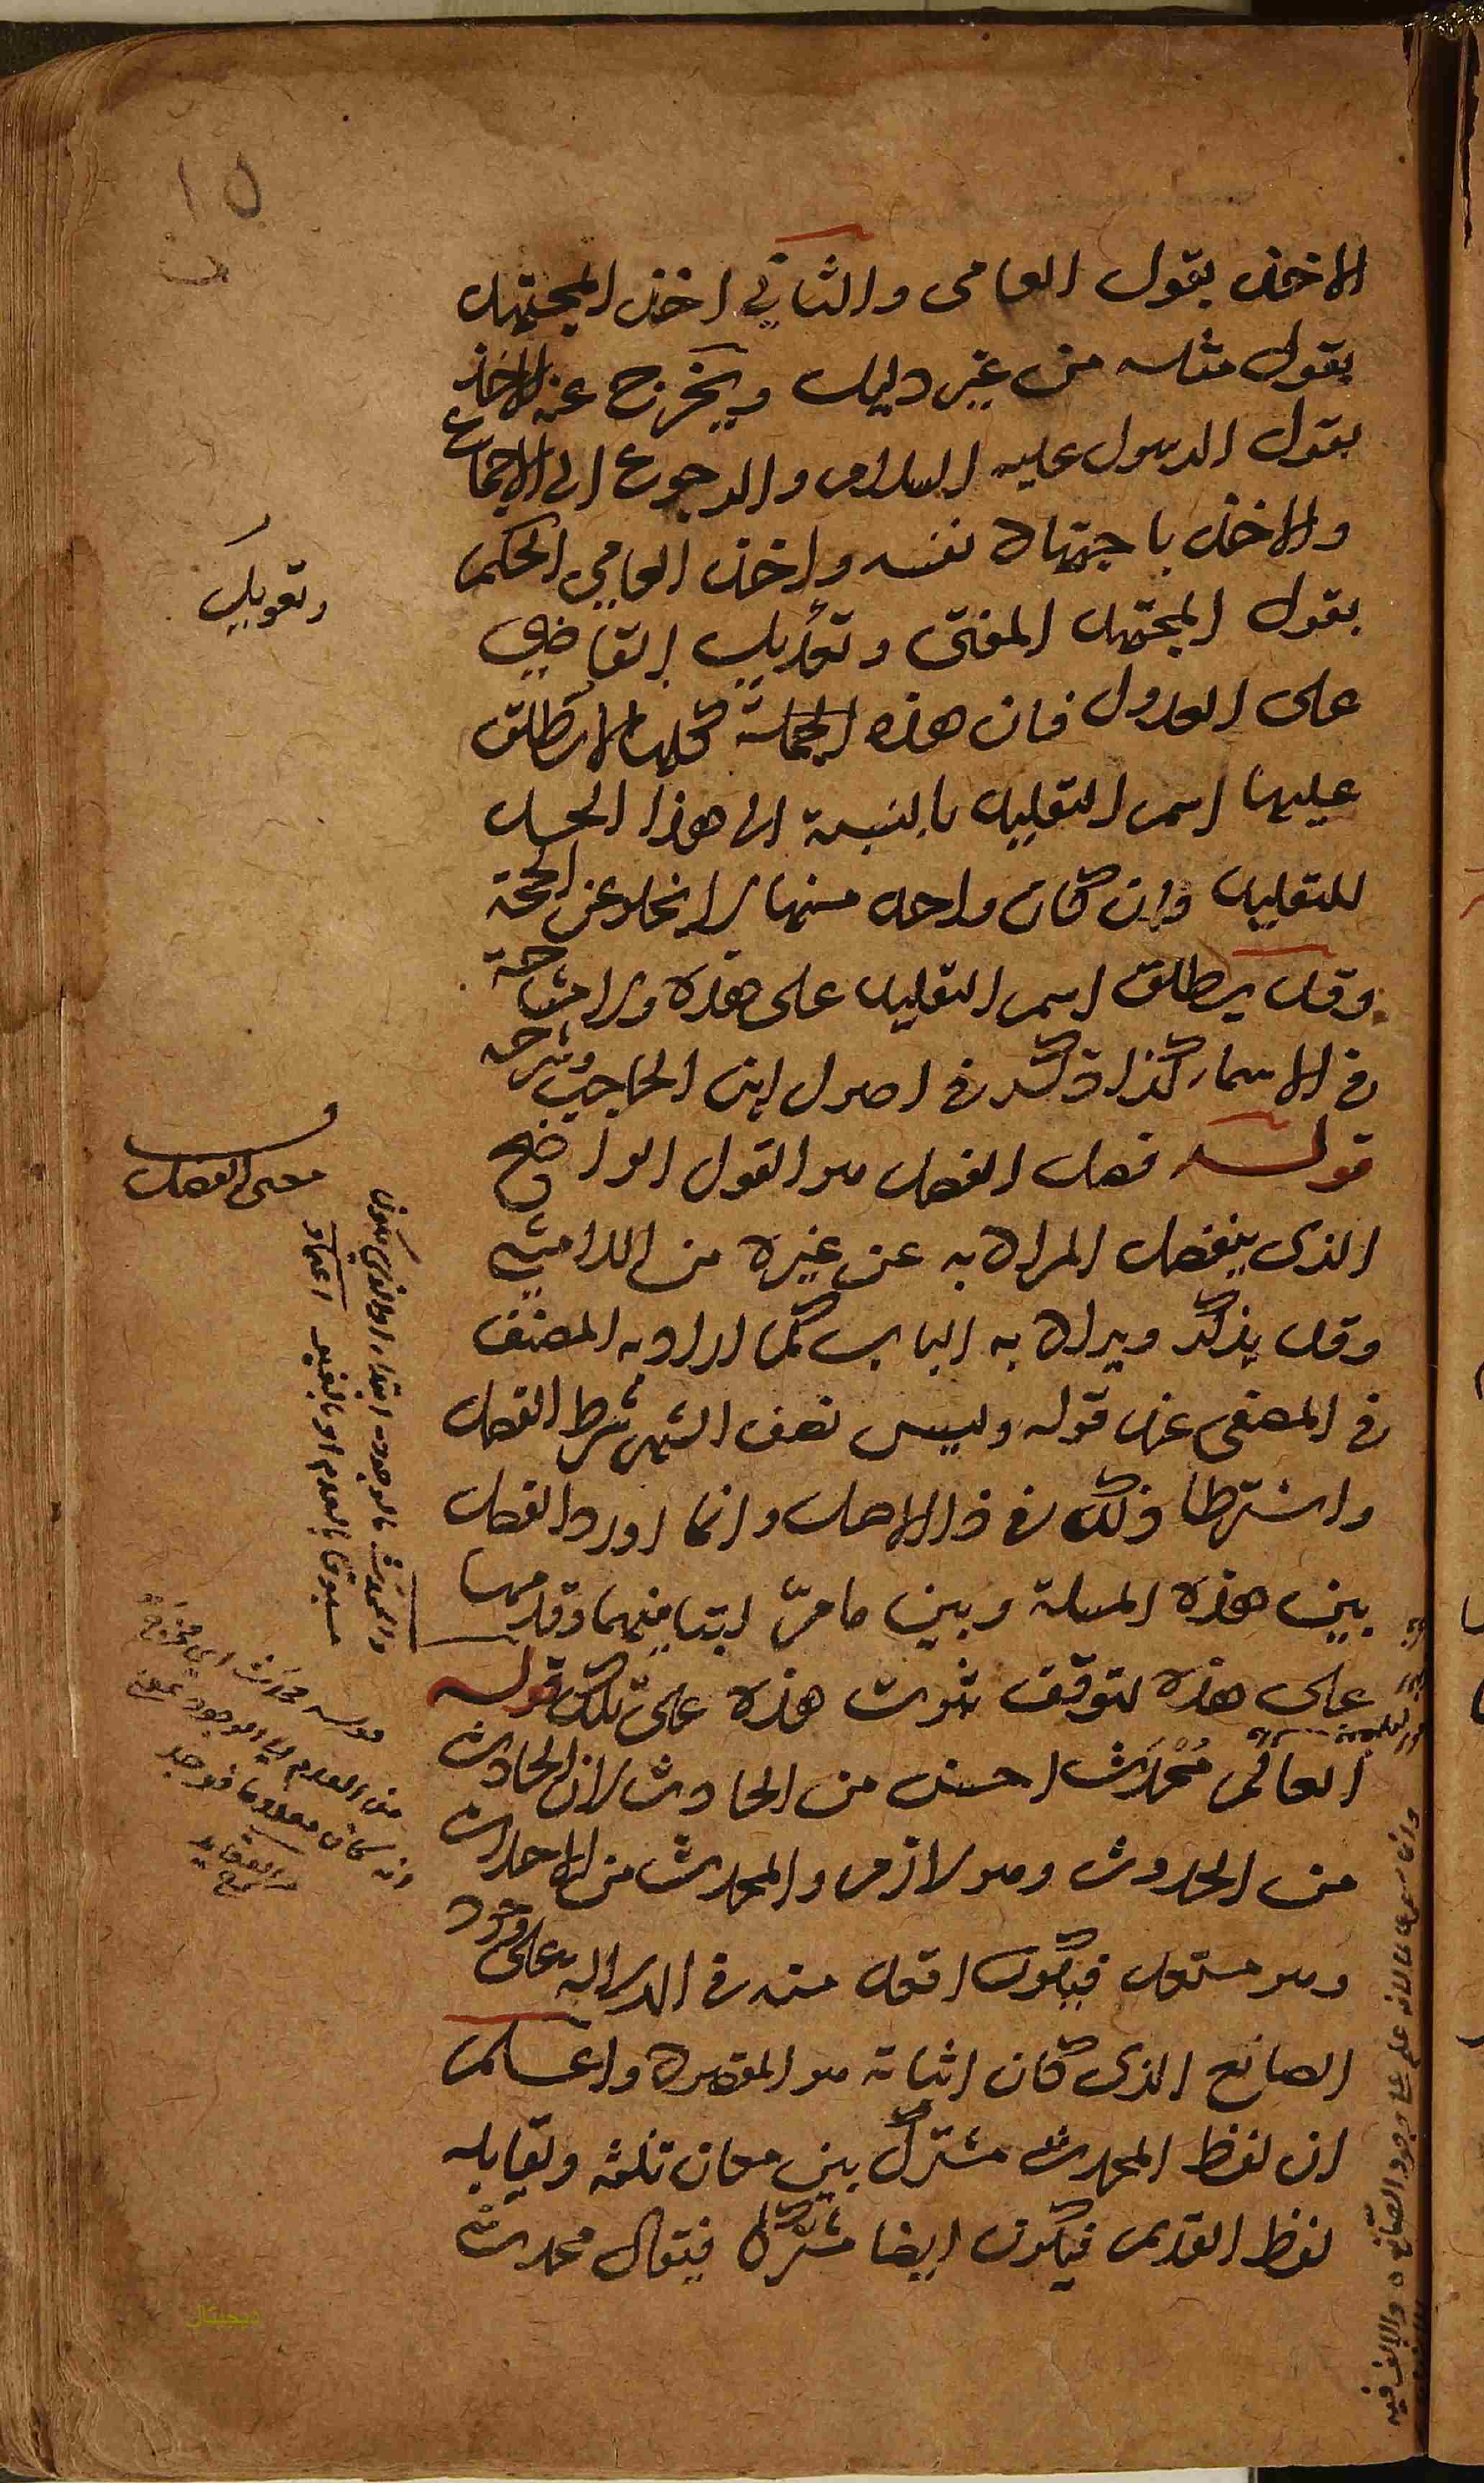 ١٥
الاخذ بقول العامى والثانى اخذ المجتهد
بقول مثله من غير دليل ويخرج عنه الاخذ
بقول الرسول عليه السلام والرجوع الى الاجماع
والاخذ باجتهاد نفسه واخذ العامي الحكم
بقول المجتهد المفتى وتعديل القاضي
على العدول فان هذه الجملة كلها لا يطلق
عليها اسم التقليد بالنسبة الى هذا الحد
للتقليد وان كان واحد منها لا يخلو عن الحجة
وقد يطلق اسم التقليد على هذه ولا مشاحة
في الاسماء كذا ذكر في اصول ابن الحاجب وشرحه
قوله فصل الفصل هو القول الواضح
الذى ينفصل المراد به عن غيره من
وقد يذكر ويراد به الباب كما اراد به المصنف
في المصفى عند قوله وليس نصف الشهر شرط الفصل
واشترطا ذلك في ذا الاصل وانما اورد الفصل
بين هذه المسئلة وبين ما مرّ لتباينهما وقدمها
على هذه لتوقف ثبوت هذه على تلك قوله
العالم مُحْدَث احسن من الحادث لان الحادث
من الحدوث وهو لازم والمحدث من الاحداث
وهو متعد فيكون اقعد منه في الدلالة على وجود
الصانع الذى كان اثباته هو المقصود واعلم
ان لفظ المحدث مشترك بين معان ثلثة ويقابله
لفظ القديم فيكون ايضا مشتركا فيقال محدث
معنى الفصل
والمحدث بالوجود ابتداء
مسبوقا بالعدم او بالغير
قوله محدث اى مخرج
من العدم الى الوجود بمعنى
انه كان معدوما فوجد
شرح العقايد
ديجيتال